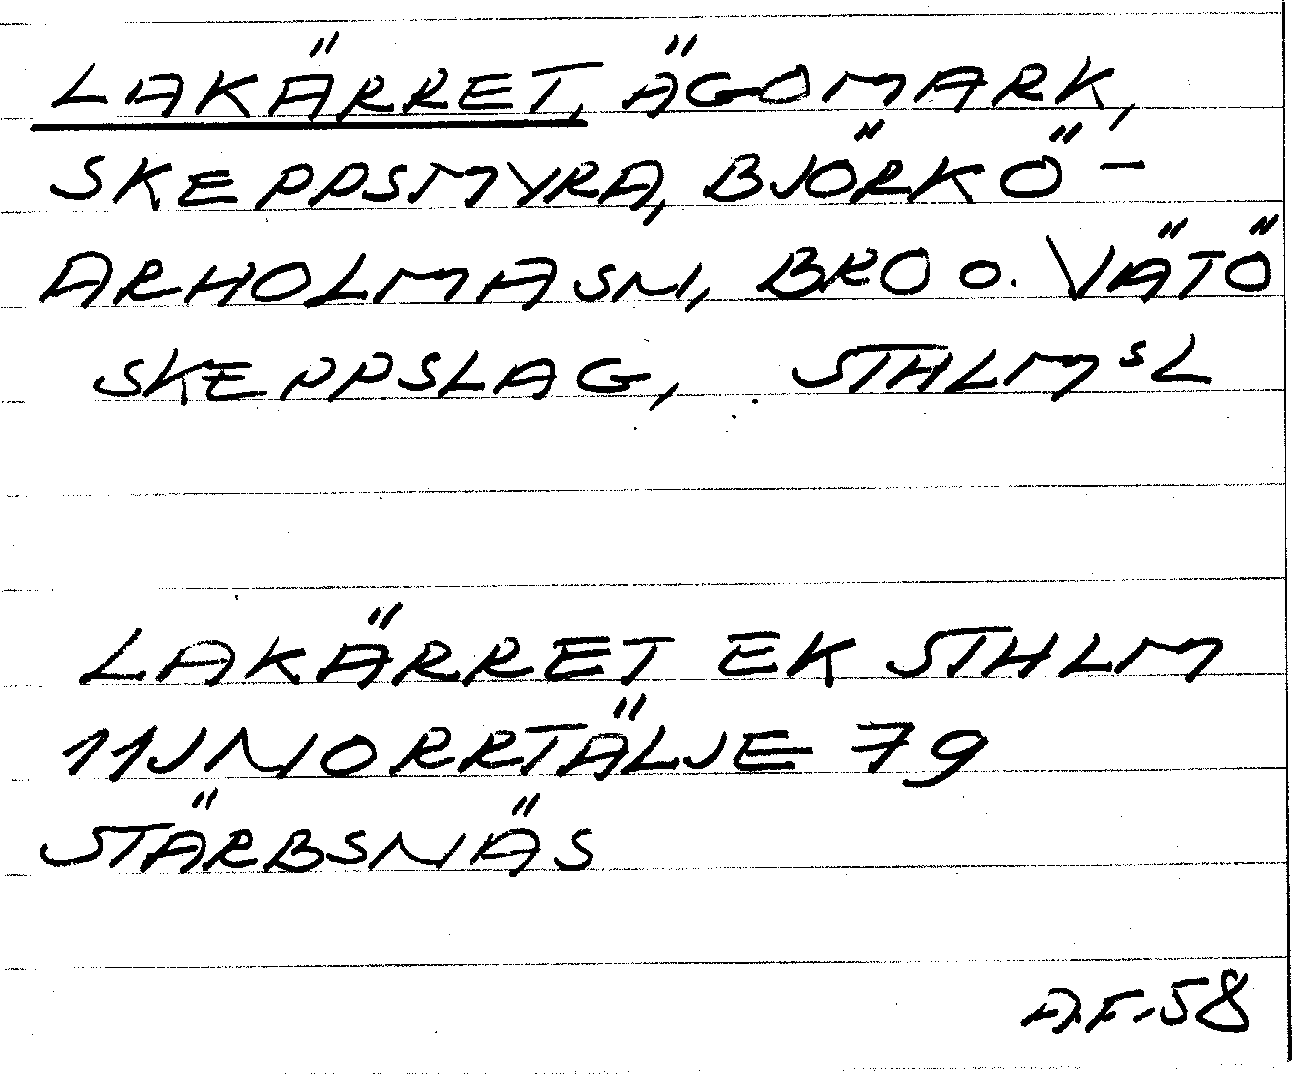 LAKÄRRET, ÄGOMARK,
SKEPPSMYRA, BJÖRKÖ-
ARHOLMA SN, BRO O. VÄTÖ
SKEPPSLAG, STHLMSL
LAKÄRRET EK STHLM
11J NORRTÄLJE 79
STÄRBSNÄS
A.F.-58